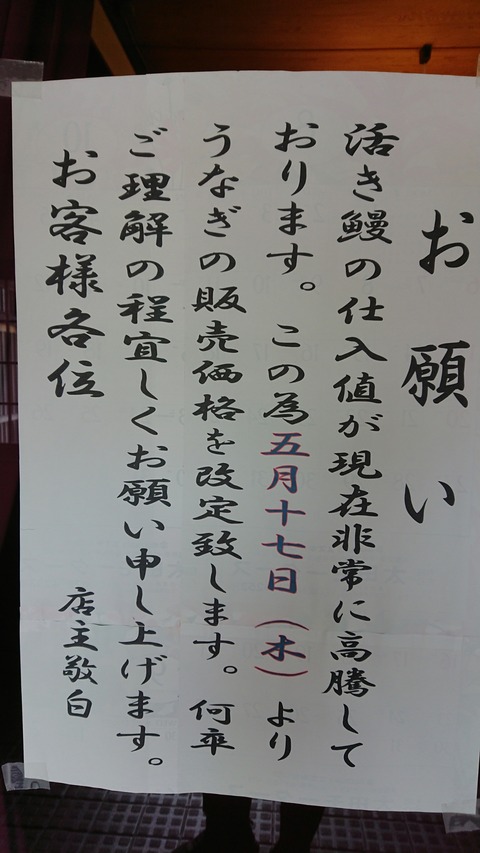 お願い
活き鰻の仕入値が現在非常に高騰して
おります。この為五月十七日(木)より
うなぎの販売価格を改定致します。何卒
ご理解の程宜しくお願い申し上げます。
お客様各位
店主敬白